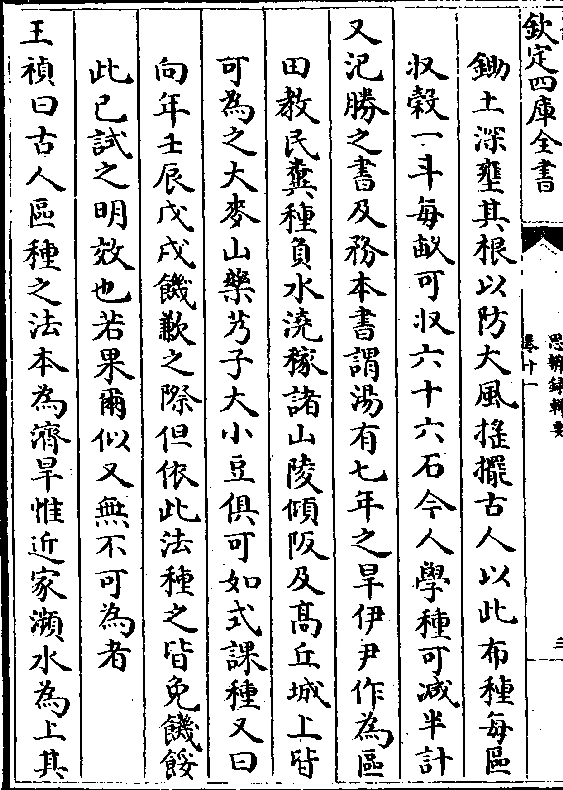 欽定四庫全書
思辨録輯要
卷十一
三
鋤土深壅其根以防大風揺擺古人以此布種每區
收穀一斗每畝可收六十六石今人學種可減半計
又氾勝之書及務本書謂湯有七年之旱伊尹作為區
田教民糞種負水澆稼諸山陵傾阪及髙丘城上皆
可為之大麥山藥芋子大小豆俱可如式課種又曰
向年壬辰戊戌饑歉之際但依此法種之皆免饑餒
此已試之明效也若果爾似又無不可為者
王禎曰古人區種之法本為濟旱惟近家瀕水為上其